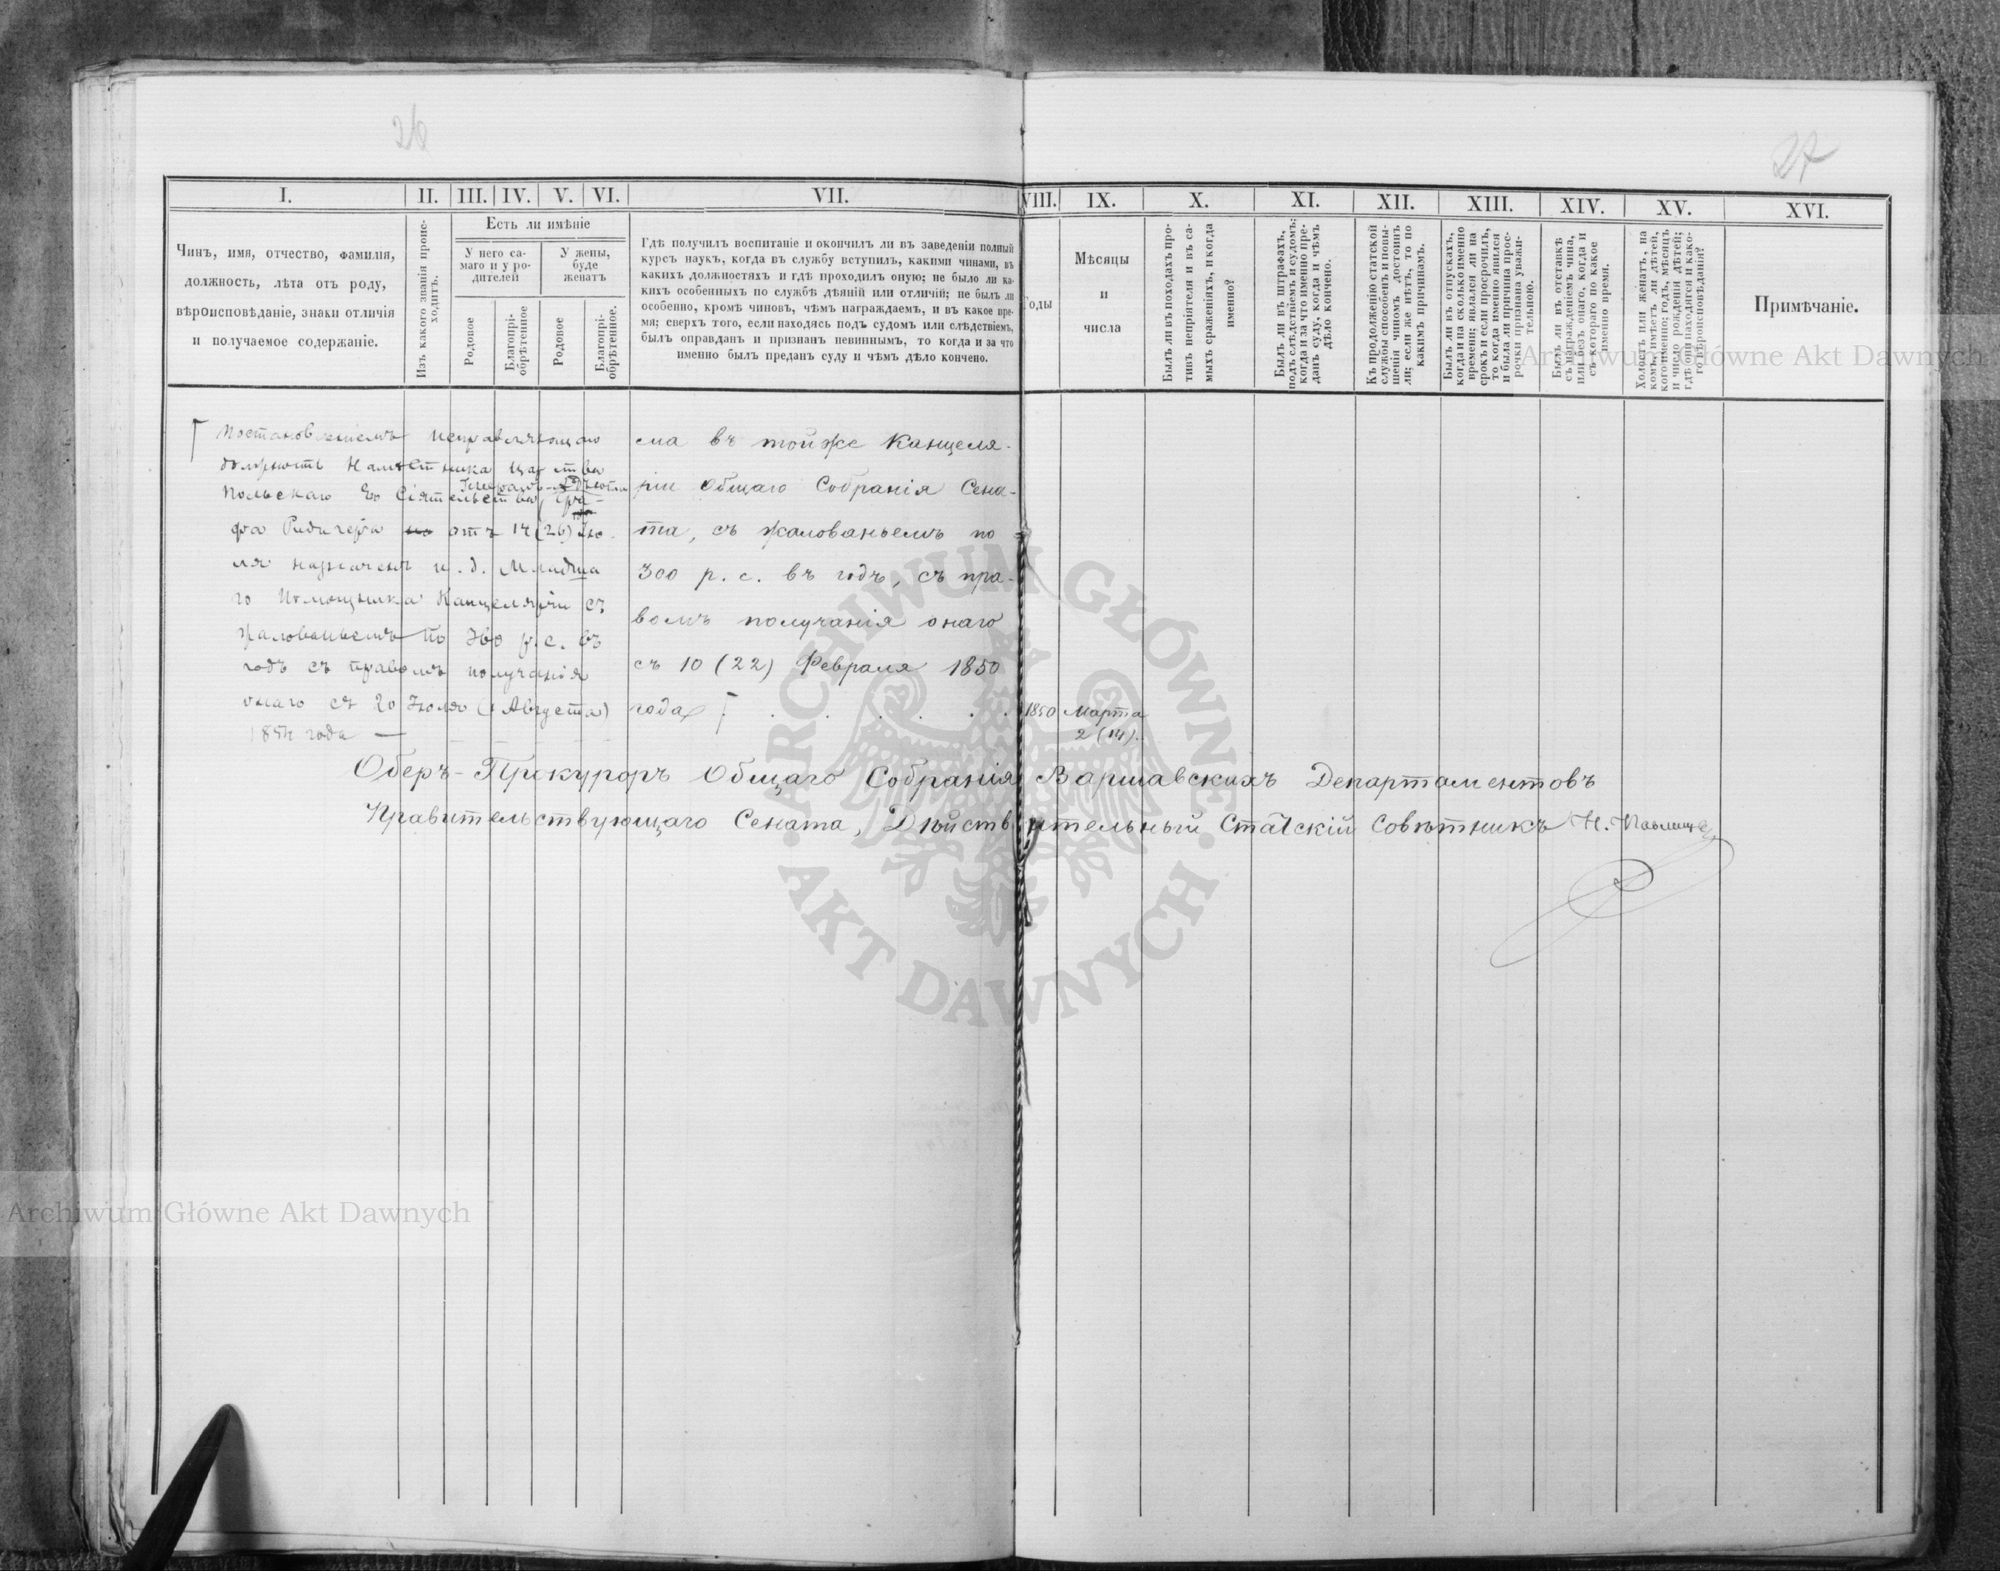 26
27
I.
II.
III.
IV.
V.
VI.
VII.
VIII.
IX.
X.
XI.
XII.
XIII.
XIV.
XV.
XVI.
Чинъ, имя, отчество, фамилія,
должность, лѣта отъ роду,
вѣроисповѣданіе, знаки отличія
и получаемое содержаніе.
Изъ какого званія проис-
ходитъ.
Есть ли имѣніе
У него са-
маго и у ро-
дителей
У жены,
буде
женатъ
Родовое
Благопрі-
обрѣтенное
Родовое
Благопрі-
обрѣтенное.
Гдѣ получилъ воспитаніе и окончилъ ли въ заведеніи полный
курсъ наукъ, когда въ службу вступилъ, какими чинами, въ
какихъ должностяхъ и гдѣ проходилъ оную; не было ли ка-
кихъ особенныхъ по службѣ дѣяній или отличій; не былъ ли
особенно, кромѣ чиновъ, чѣмъ награждаемъ, и въ какое вре-
мя; сверхъ того, если находясь подъ судомъ или слѣдствіемъ,
былъ оправданъ и признанъ невиннымъ, то когда и за что
именно былъ преданъ суду и чѣмъ дѣло кончено.
Годы
Мѣсяцы
и
числа
Былъ ли въ походахъ про-
тивъ непріятеля и въ са-
мыхъ сраженіяхъ, и когда
именно?
Былъ ли въ штрафахъ,
подъ слѣдствіемъ и судомъ;
когда и за что именно пре-
данъ суду, когда и чѣмъ
дѣло кончено.
Къ продолженію статской
службы способенъ и повы-
шенія чиномъ достоинъ
ли; если же нѣтъ, то по
какимъ причинамъ.
Былъ ли въ отпускахъ,
когда и на сколько именно
времени; являлся ли на
срокъ и если просрочилъ,
то когда именно явился
и была ли причина прос-
рочки признана уважи-
тельною.
Былъ ли въ отставкѣ
съ награжденіемъ чина,
или безъ онаго, когда и
съ котораго по какое
именно время.
Холостъ или женатъ, на
комъ, имѣетъ ли дѣтей,
кого именно; годъ, мѣсяцъ
и число рожденія дѣтей;
гдѣ они находятся и како-
го вѣроисповѣданія?
Примѣчаніе.
Постановленіемъ Исправляющаго
должность Намѣстника Царства
Генералъ-Адъютанта
Польскаго Его Сіятельства Гра-
фа Ридигера отъ 14 (26) Ію-
ля назначенъ и. д. Младша
го Помощника Канцеляріи съ
жалованьемъ по 360 р. с. въ
годъ съ правомъ полученія
онаго съ 20 Іюля (1 Августа)
1854 года —
сма въ тойже Канцеля-
ріи Общаго Собранія Сена-
та, съ жалованьемъ по
300 р. с. въ годъ, съ пра-
вомъ полученія онаго
съ 10 (22) Февраля 1850
года . . . . . . .
1850
Марта
2 (14).
Оберъ-Прокуроръ Общаго Собранія Варшавскихъ Департаментовъ
Правительствующаго Сената, Дѣйствительный Статскій Совѣтникъ Н. Павлищевъ
Archiwum Główne Akt Dawnych
Archiwum Główne Akt Dawnych
· ARCHIWUM GŁÓWNE · AKT DAWNYCH